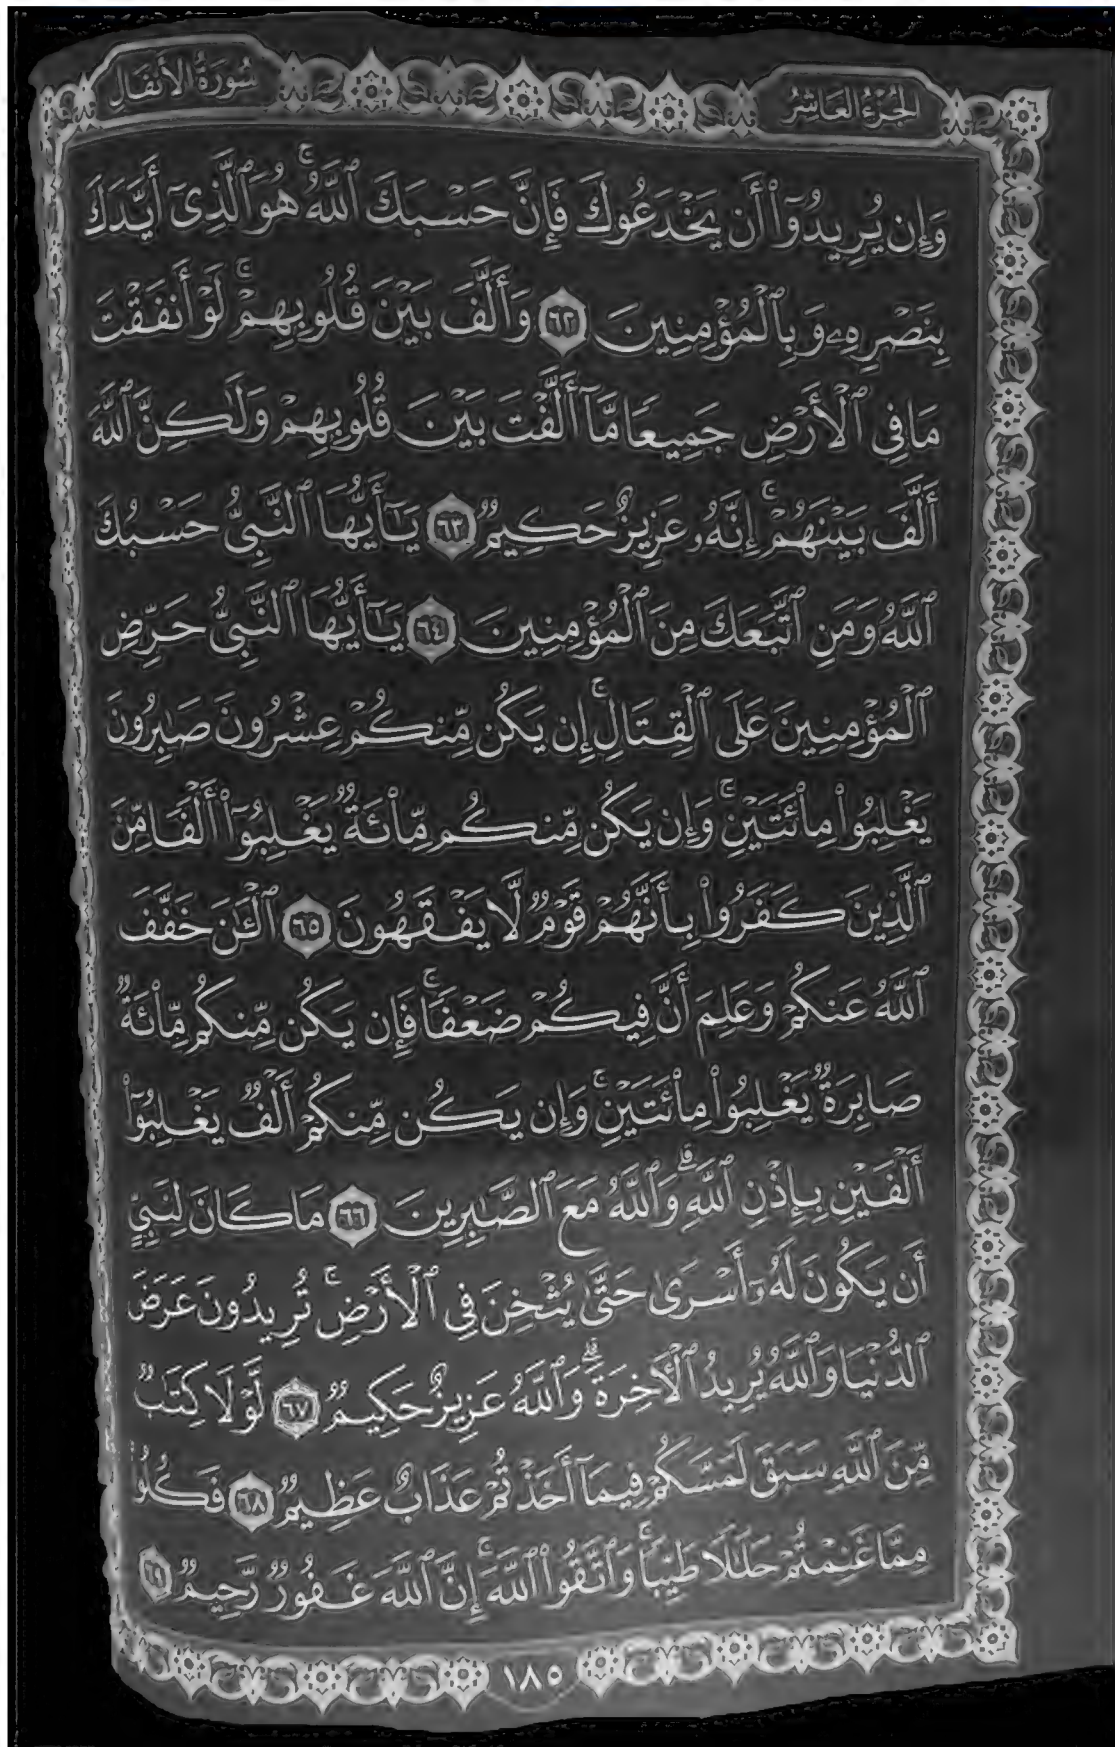 الجُزْءُ العَاشِرُ
سُورَةُ الأَنفَالِ
وَإِن يُرِيدُوٓا۟ أَن يَخْدَعُوكَ فَإِنَّ حَسْبَكَ ٱللَّهُ ۚ هُوَ ٱلَّذِىٓ أَيَّدَكَ
بِنَصْرِهِۦ وَبِٱلْمُؤْمِنِينَ ٦٢ وَأَلَّفَ بَيْنَ قُلُوبِهِمْ ۚ لَوْ أَنفَقْتَ
مَا فِى ٱلْأَرْضِ جَمِيعًا مَّآ أَلَّفْتَ بَيْنَ قُلُوبِهِمْ وَلَـٰكِنَّ ٱللَّهَ
أَلَّفَ بَيْنَهُمْ ۚ إِنَّهُۥ عَزِيزٌ حَكِيمٌ ٦٣ يَـٰٓأَيُّهَا ٱلنَّبِىُّ حَسْبُكَ
ٱللَّهُ وَمَنِ ٱتَّبَعَكَ مِنَ ٱلْمُؤْمِنِينَ ٦٤ يَـٰٓأَيُّهَا ٱلنَّبِىُّ حَرِّضِ
ٱلْمُؤْمِنِينَ عَلَى ٱلْقِتَالِ ۚ إِن يَكُن مِّنكُمْ عِشْرُونَ صَـٰبِرُونَ
يَغْلِبُوا۟ مِا۟ئَتَيْنِ ۚ وَإِن يَكُن مِّنكُم مِّا۟ئَةٌ يَغْلِبُوٓا۟ أَلْفًا مِّنَ
ٱلَّذِينَ كَفَرُوا۟ بِأَنَّهُمْ قَوْمٌ لَّا يَفْقَهُونَ ٦٥ ٱلْـَٔـٰنَ خَفَّفَ
ٱللَّهُ عَنكُمْ وَعَلِمَ أَنَّ فِيكُمْ ضَعْفًا ۚ فَإِن يَكُن مِّنكُم مِّا۟ئَةٌ
صَابِرَةٌ يَغْلِبُوا۟ مِا۟ئَتَيْنِ ۚ وَإِن يَكُن مِّنكُمْ أَلْفٌ يَغْلِبُوٓا۟
أَلْفَيْنِ بِإِذْنِ ٱللَّهِ ۗ وَٱللَّهُ مَعَ ٱلصَّـٰبِرِينَ ٦٦ مَا كَانَ لِنَبِىٍّ
أَن يَكُونَ لَهُۥٓ أَسْرَىٰ حَتَّىٰ يُثْخِنَ فِى ٱلْأَرْضِ ۚ تُرِيدُونَ عَرَضَ
ٱلدُّنْيَا وَٱللَّهُ يُرِيدُ ٱلْـَٔاخِرَةَ ۗ وَٱللَّهُ عَزِيزٌ حَكِيمٌ ٦٧ لَّوْلَا كِتَـٰبٌ
مِّنَ ٱللَّهِ سَبَقَ لَمَسَّكُمْ فِيمَآ أَخَذْتُمْ عَذَابٌ عَظِيمٌ ٦٨ فَكُلُوا۟
مِمَّا غَنِمْتُمْ حَلَـٰلًا طَيِّبًا ۚ وَٱتَّقُوا۟ ٱللَّهَ ۚ إِنَّ ٱللَّهَ غَفُورٌ رَّحِيمٌ ٦٩
١٨٥